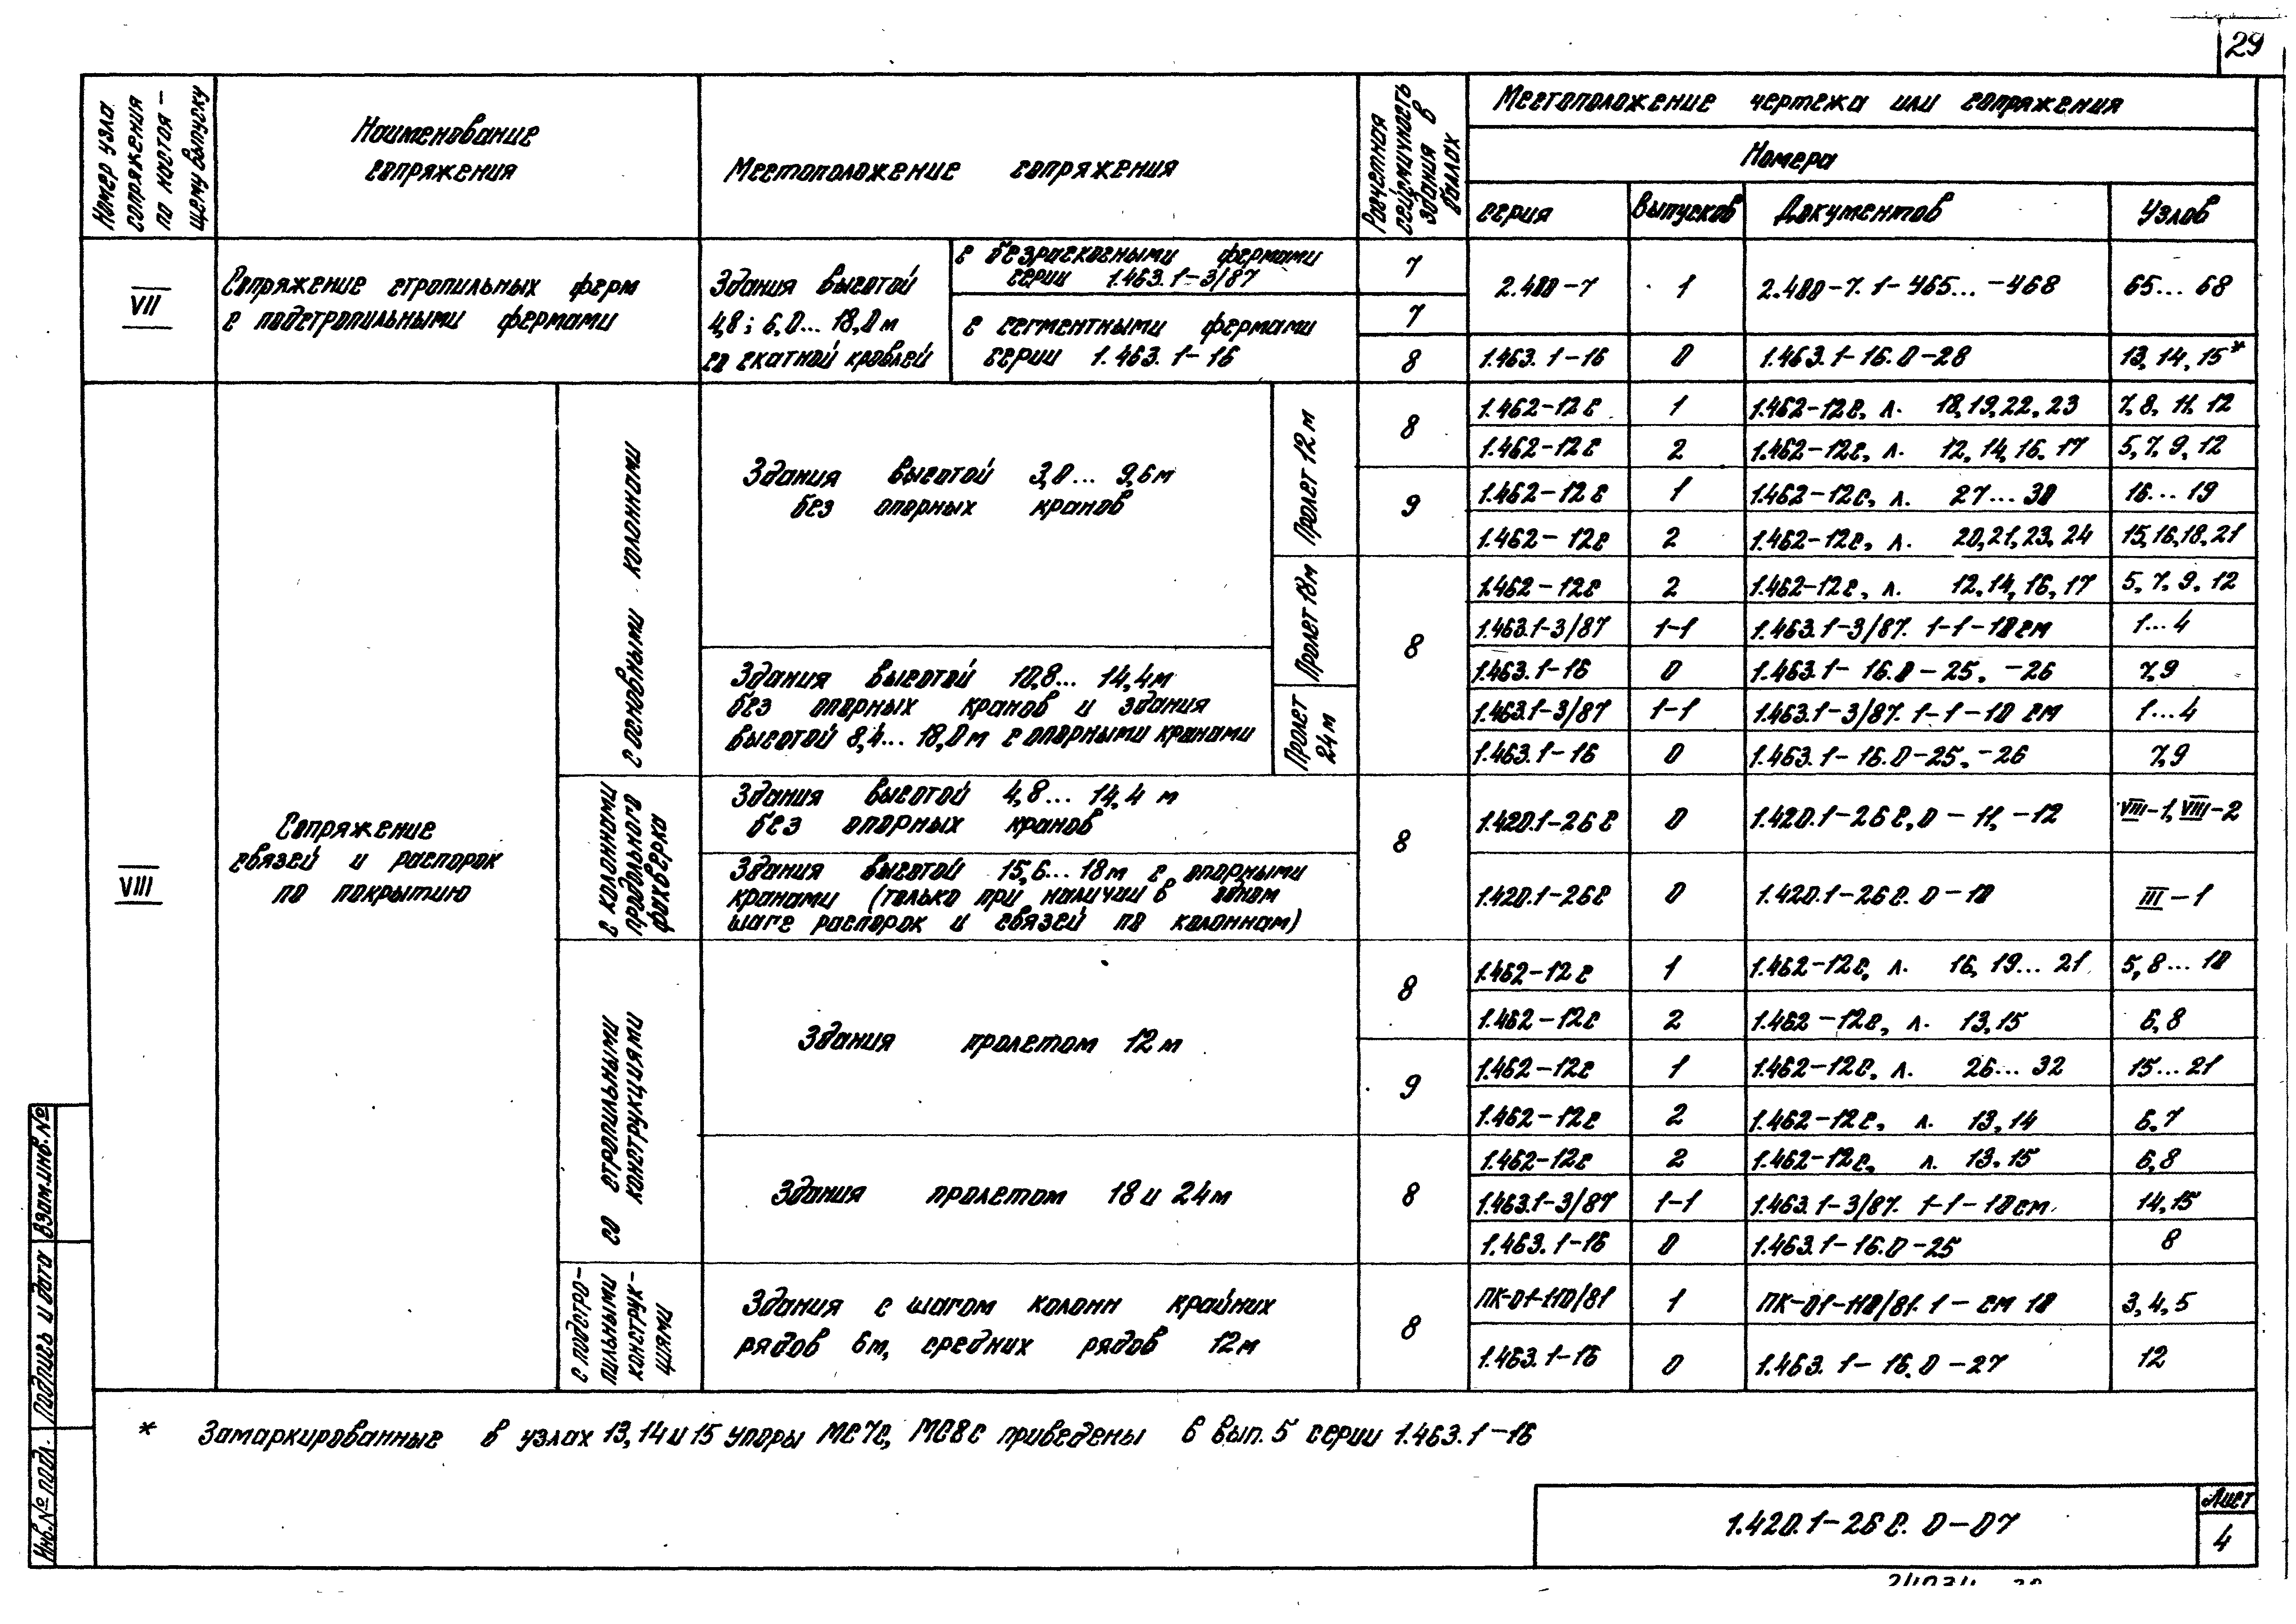 29
Номер узла
сопряжения
по настоя-
щему выпуску
Наименование
сопряжения
Местоположение сопряжения
Расчетная
сейсмичность
здания в
баллах
Местоположение чертежа или сопряжения
Номера
серия
Выпусков
Документов
Узлов
VII
Сопряжение стропильных ферм
с подстропильными фермами
Здания высотой
4,8; 6,0... 18,0 м
со скатной кровлей
с безраскосными фермами
серии 1.463.1-3/87
7
2.400-7
1
2.400-7.1-465... -468
65... 68
с сегментными фермами
серии 1.463.1-16
7
8
1.463.1-16
0
1.463.1-16.0-28
13, 14, 15*
VIII
Сопряжение
связей и распорок
по покрытию
с основными колоннами
Здания высотой 3,0... 9,6 м
без опорных кранов
Пролет 12 м
8
1.462-12с
1
1.462-12с, л. 18, 19, 22, 23
7, 8, 11, 12
1.462-12с
2
1.462-12с, л. 12, 14, 16, 17
5, 7, 9, 12
9
1.462-12с
1
1.462-12с, л. 27... 30
16... 19
1.462-12с
2
1.462-12с, л. 20, 21, 23, 24
15, 16, 18, 21
Пролет 18 м
8
1.462-12с
2
1.462-12с, л. 12, 14, 16, 17
5, 7, 9, 12
1.463.1-3/87
1-1
1.463.1-3/87. 1-1-10см
1... 4
Здания высотой 10,8... 14,4 м
без опорных кранов и здания
высотой 8,4... 18,0 м с опорными кранами
1.463.1-16
0
1.463.1-16.0-25, -26
7, 9
Пролет
24 м
1.463.1-3/87
1-1
1.463.1-3/87. 1-1-10 см
1... 4
1.463.1-16
0
1.463.1-16.0-25, -26
7, 9
с колоннами
продольного
фахверка
Здания высотой 4,8... 14,4 м
без опорных кранов
8
1.420.1-26с
0
1.420.1-26с.0-11, -12
VIII-1, VIII-2
Здания высотой 15,6... 18 м с опорными
кранами (только при наличии в одном
шаге распорок и связей по колоннам)
1.420.1-26с
0
1.420.1-26с.0-10
III-1
со стропильными
конструкциями
Здания пролетом 12 м
8
1.462-12с
1
1.462-12с, л. 16, 19... 21
5, 8... 10
1.462-12с
2
1.462-12с, л. 13, 15
6, 8
9
1.462-12с
1
1.462-12с, л. 26... 32
15... 21
1.462-12с
2
1.462-12с, л. 13, 14
6, 7
Здания пролетом 18 и 24 м
8
1.462-12с
2
1.462-12с, л. 13, 15
6, 8
1.463.1-3/87
1-1
1.463.1-3/87. 1-1-10см
14, 15
1.463.1-16
0
1.463.1-16.0-25
8
с подстро-
пильными
конструк-
циями
Здания с шагом колонн крайних
рядов 6 м, средних рядов 12 м
8
ПК-01-110/81
1
ПК-01-110/81.1-см 10
3, 4, 5
1.463.1-16
0
1.463.1-16.0-27
12
* Замаркированные в узлах 13, 14 и 15 упоры МС7с, МС8с приведены в вып. 5 серии 1.463.1-16
Инв.№ подл.
Подпись и дата
Взам.инв.№
1.420.1-26с.0-07
Лист
4